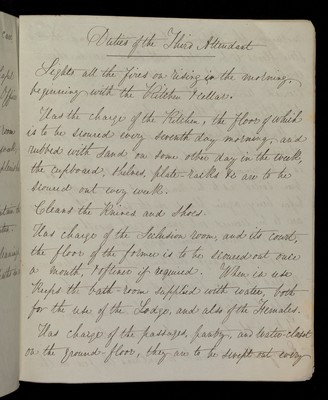 Duties of the Third Attendant
Lights all the fires on rising in the morning,
beginning with the Kitchen & cellar.
Has the charge of the Kitchen, the floor of which
is to be scoured every seventh day morning, and
rubbed with sand on some other day in the week,
the cupboard, shelves, plate-racks &c are to be
scoured out every week.
Cleans the Knives and Shoes.
Has charge of the Seclusion room, and its court,
the floor of the former is to be scoured out once
a month, & oftener if required. When in use
keeps the bath-room supplied with water, both
for the use of the Lodge, and also of the Females.
Has charge of the passages, pantry, and water-closet
on the ground-floor, they are to be swept out every